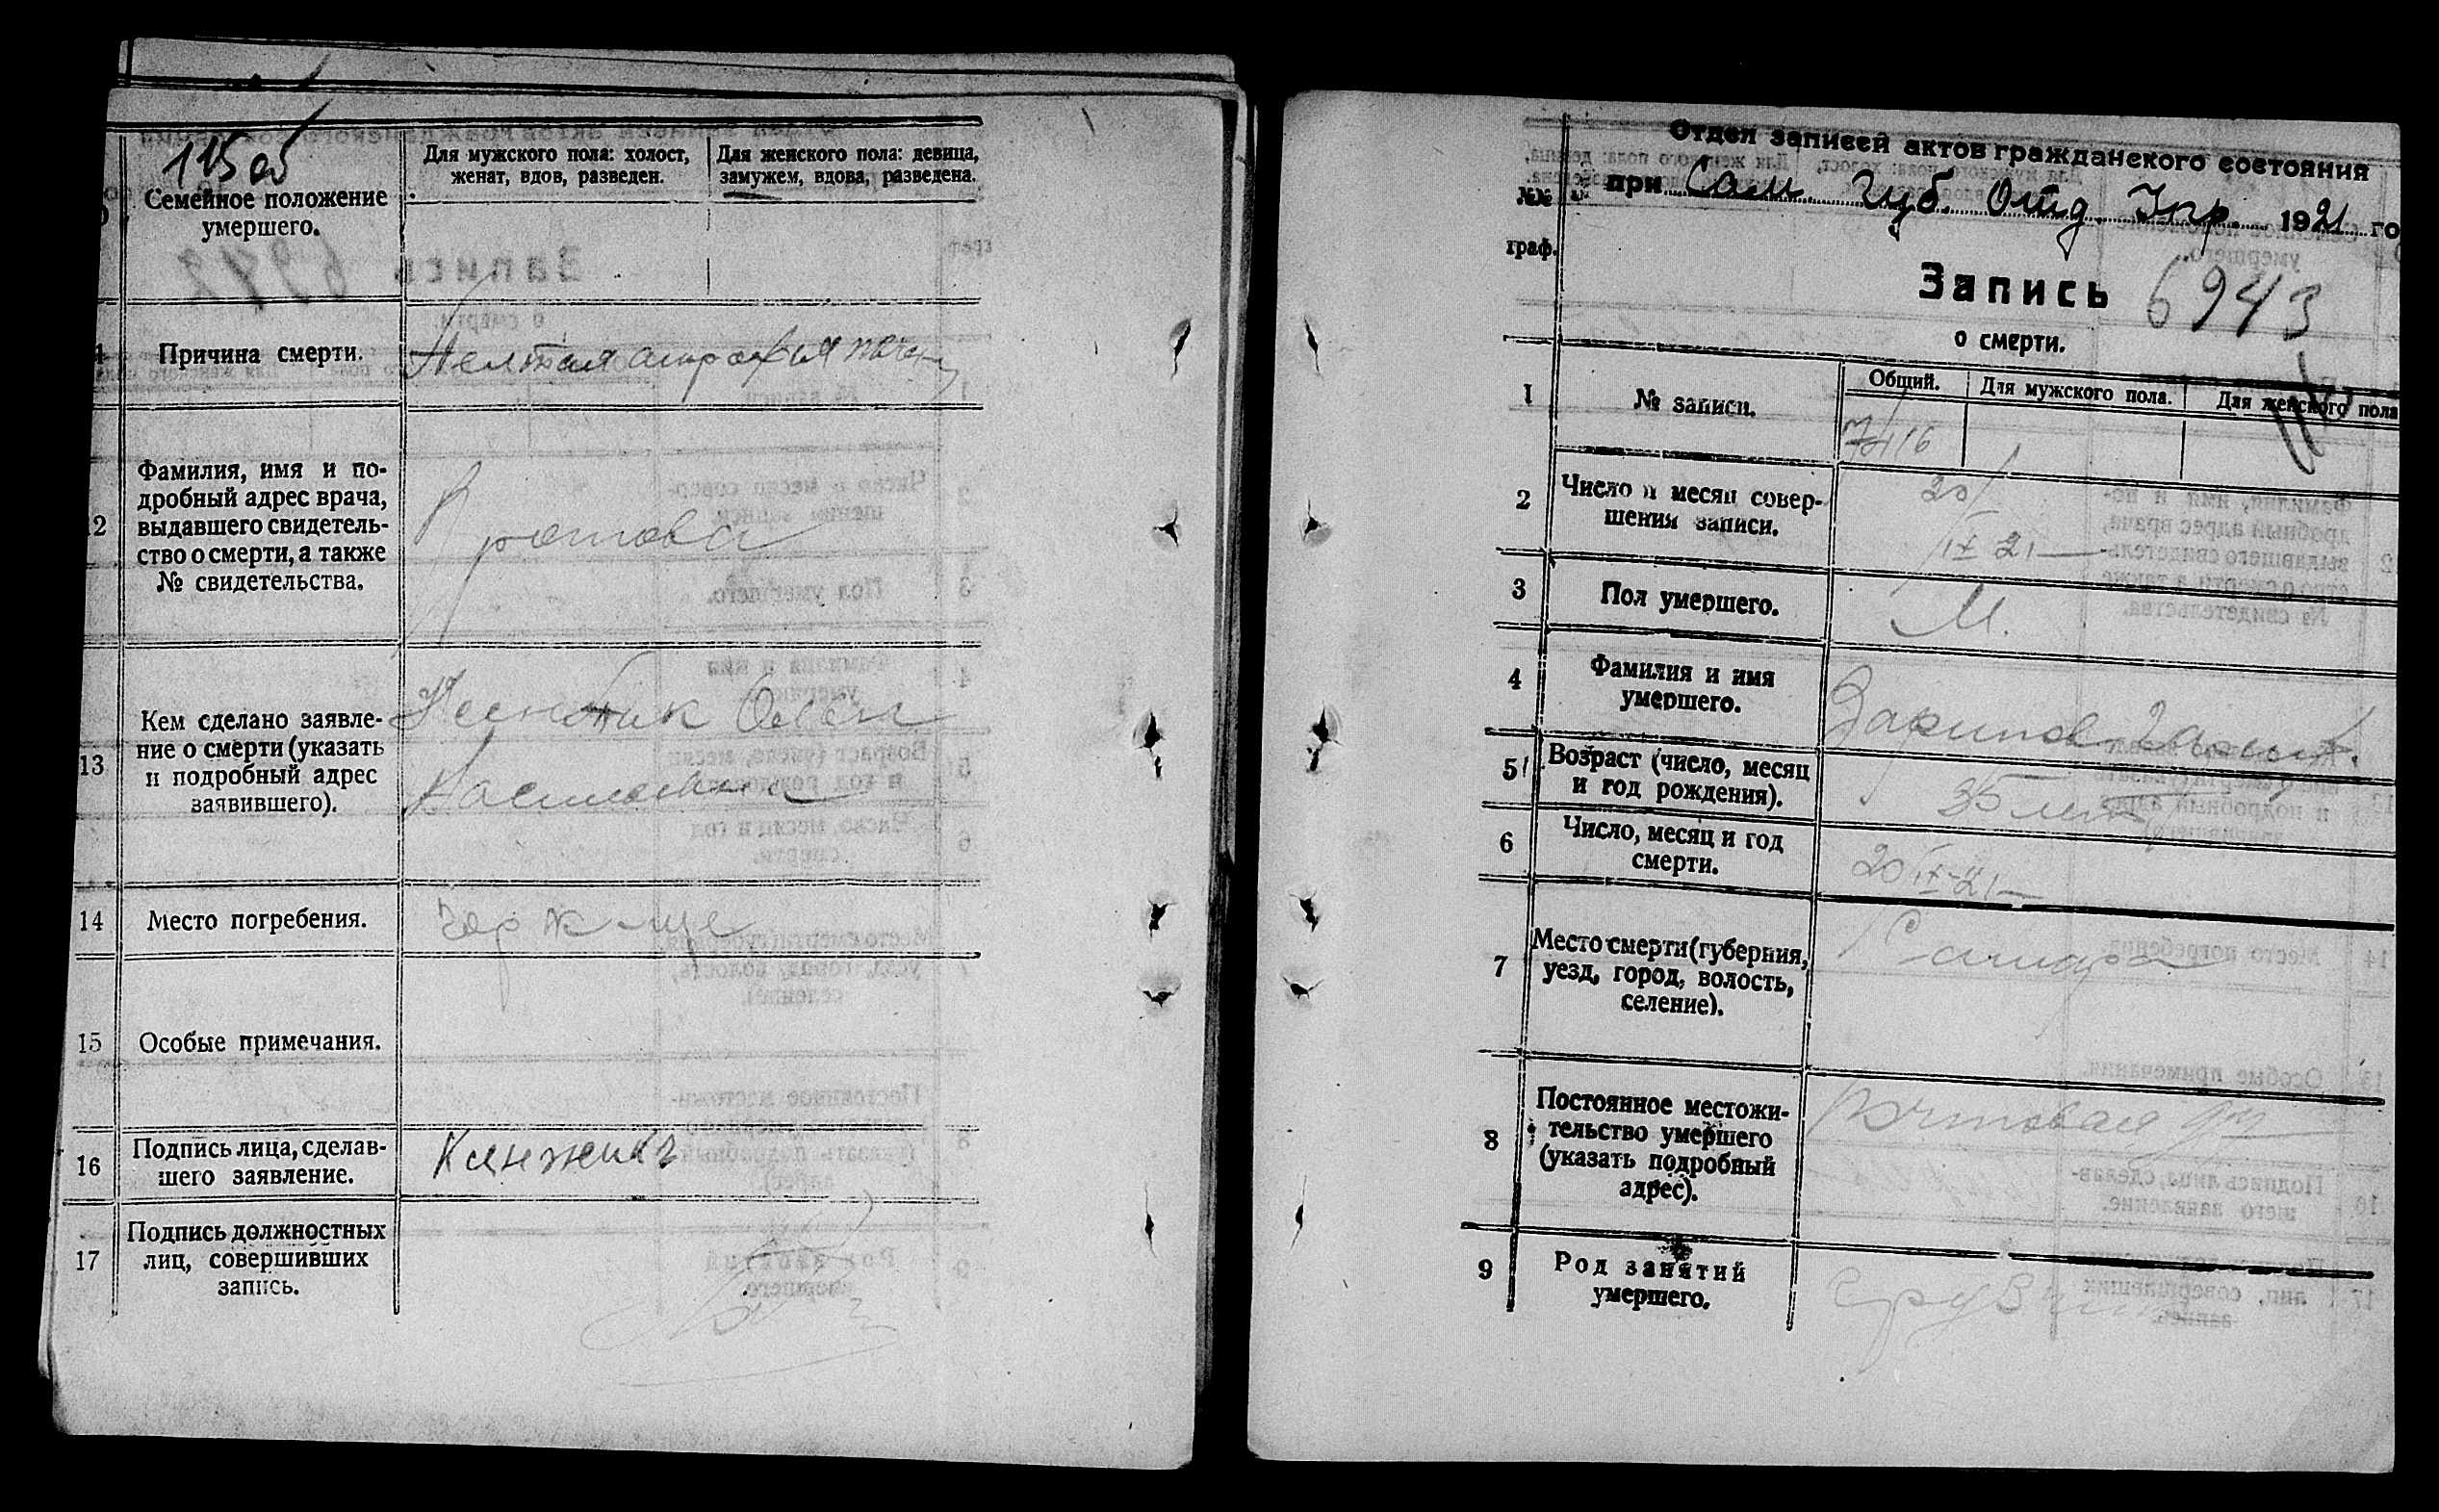 115 об
Семейное положение
умершего.
Для мужского пола: холост,
женат, вдов, разведен.
Для женского пола: девица,
замужем, вдова, разведена.
Причина смерти.
Желтая атрофия печени
12
Фамилия, имя и по-
дробный адрес врача,
выдавшего свидетель-
ство о смерти, а также
№ свидетельства.
13
Кем сделано заявле-
ние о смерти (указать
и подробный адрес
заявившего).
14
Место погребения.
15
Особые примечания.
16
Подпись лица, сделав-
шего заявление.
17
Подпись должностных
лиц, совершивших
запись.
Отдел записей актов гражданского состояния
при Сам. Губ. Отд. Упр. 1921 го
№№
граф.
Запись 6943
о смерти.
1
№ записи.
Общий.
Для мужского пола.
Для женского пола
2
Число и месяц совер-
шения записи.
20/
IX 21
3
Пол умершего.
М.
4
Фамилия и имя
умершего.
Зарипов
5
Возраст (число, месяц
и год рождения).
35 лет
6
Число, месяц и год
смерти.
20 IX-21
7
Место смерти (губерния,
уезд, город, волость,
селение).
Самара
8
Постоянное местожи-
тельство умершего
(указать подробный
адрес).
9
Род занятий
умершего.
Грузчик